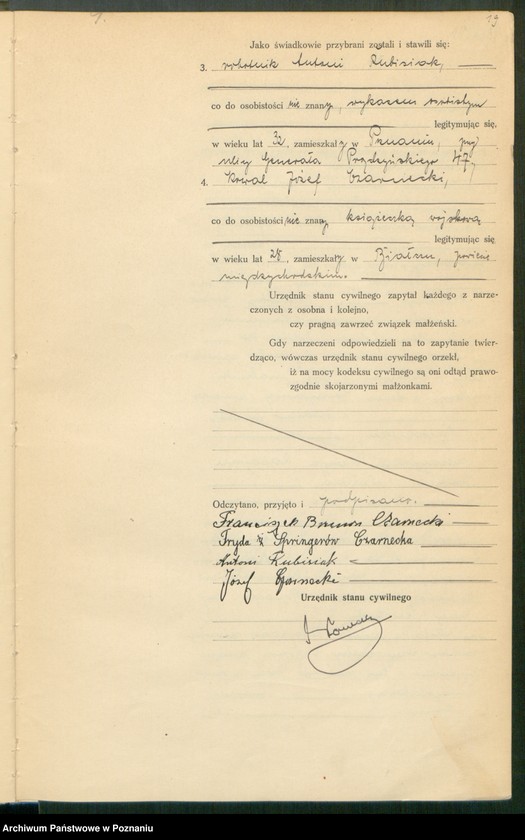 19
Jako świadkowie przybrani zostali i stawili się:
3. robotnik Antoni Kubisiak,
co do osobistości nie znany, wykazem osobistym
legitymując się,
w wieku lat 32, zamieszkały w Poznaniu, przy
ulicy Generała Prądzyńskiego 47,
4. kowal Józef Czarnecki,
co do osobistości nie znany książeczką wojskową
legitymując się
w wieku lat 28, zamieszkały w powiecie
międzychodzkim.
Urzędnik stanu cywilnego zapytał każdego z narze-
czonych z osobna i kolejno,
czy pragną zawrzeć związek małżeński.
Gdy narzeczeni odpowiedzieli na to zapytanie twier-
dząco, wówczas urzędnik stanu cywilnego orzekł,
iż na mocy kodeksu cywilnego są oni odtąd prawo-
zgodnie skojarzonymi małżonkami.
Odczytano, przyjęto i podpisano.
Franciszek Czarnecki
Fryda z Springerów Czarnecka
Antoni Kubisiak
Józef Czarnecki
Urzędnik stanu cywilnego
Archiwum Państwowe w Poznaniu